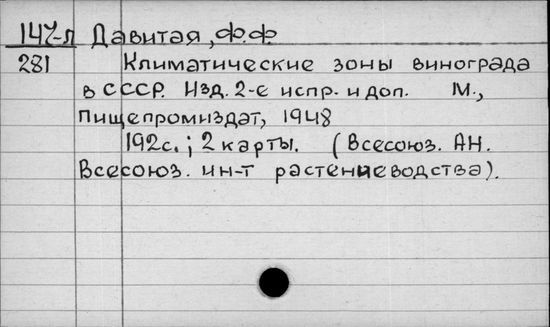 147-л Давитая, Ф.Ф
281 Климатические зоны винограда
в СССР. Изд. 2-е испр. и доп. М.,
Пищепромиздат, 1948
192с.; 2 карты. (Всесоюз. АН.
Всесоюз. ин-т растениеводства).